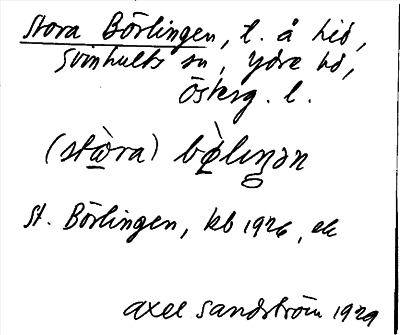 Stora Börlingen, t. å hed,
Svinhults sn, Ydre hd,
Österg. l.
(stæ̀ra) bø̀lıŋən
St. Börlingen, kb 1926, ek
Axel Sandström 1929